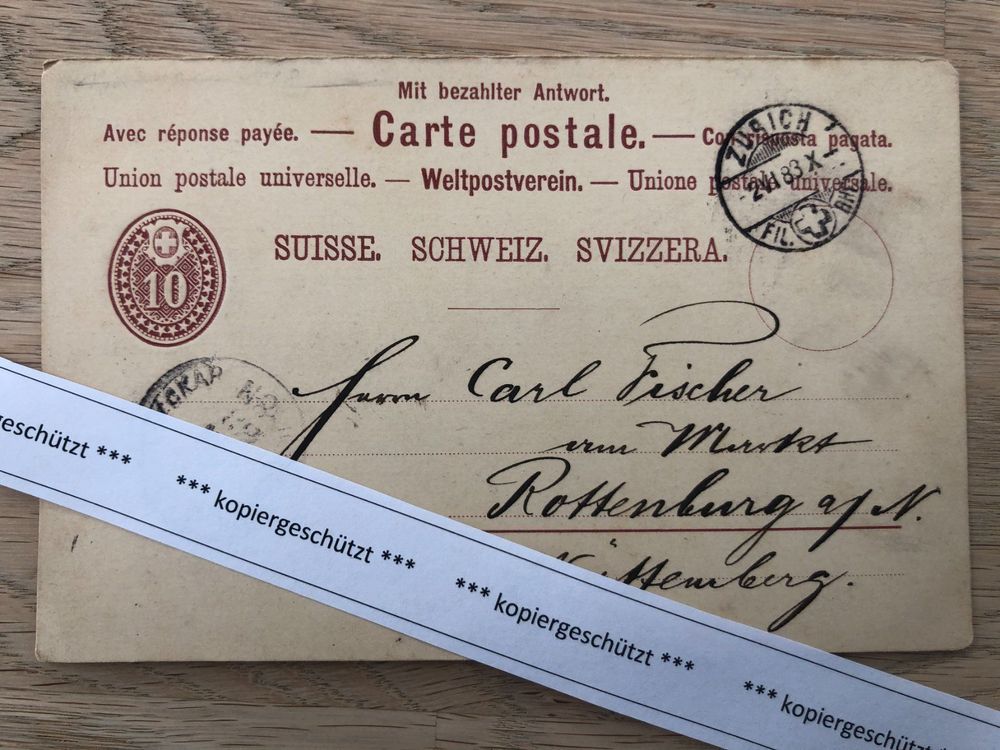 Mit bezahlter Antwort.
Avec réponse payée. — Carte postale. — Con risposta pagata.
Union postale universelle. — Weltpostverein. — Unione postale universale.
ZÜRICH 1
2 VII 83 X
FIL. RHN
10
SUISSE. SCHWEIZ. SVIZZERA.
Herrn Carl Fischer
am Markt
Rottenburg a/N.
Württemberg.
geschützt ***
*** kopiergeschützt ***
*** kopiergeschützt ***
*** kopiergeschützt